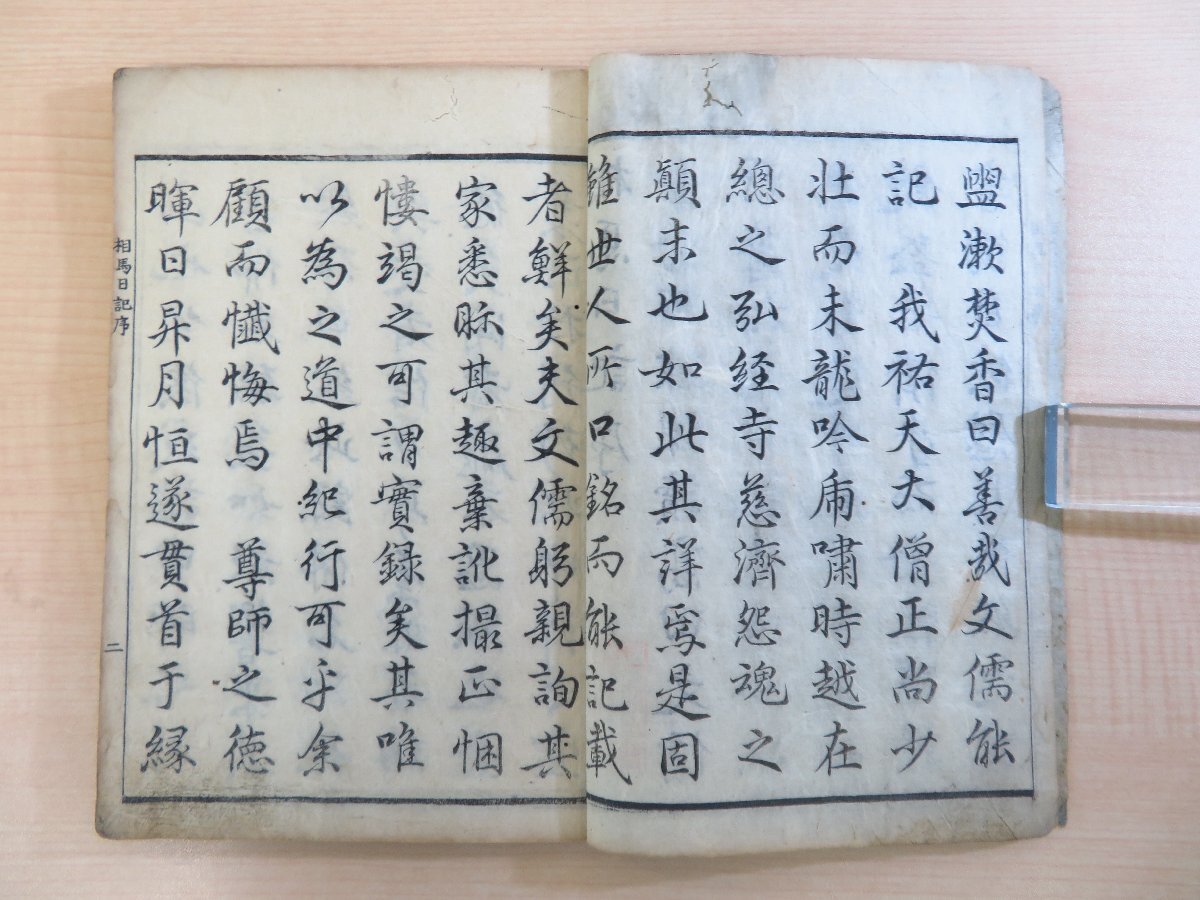 盥漱焚香曰善哉文儒能
記 我祐天大僧正尚少
壮而未龍吟虎嘯時越在
總之弘経寺慈濟怨魂之
顛末也如此其詳焉是固
雖世人所口銘而能記載
者鮮矣夫文儒躬親詢其
家悉眎其趣棄訛撮正悃
悽竭之可謂實録矣其唯
以為之道中紀行可乎余
顧而懺悔焉 尊師之徳
暉日昇月恒遂貫首于縁
相馬日記序
二